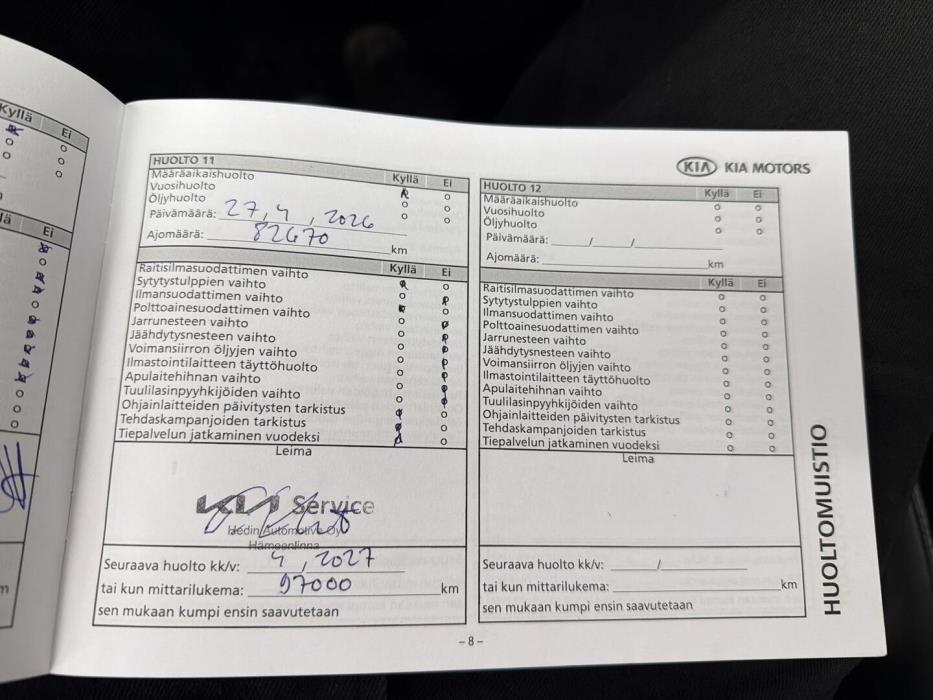 Kyllä Ei
Ei
KIA KIA MOTORS
HUOLTO 11
Kyllä Ei
Määräaikaishuolto
Vuosihuolto
Öljyhuolto
Päivämäärä: 27, 4, 2026
Ajomäärä: 82670 km
Kyllä Ei
Raitisilmasuodattimen vaihto
Sytytystulppien vaihto
Ilmansuodattimen vaihto
Polttoainesuodattimen vaihto
Jarrunesteen vaihto
Jäähdytysnesteen vaihto
Voimansiirron öljyjen vaihto
Ilmastointilaitteen täyttöhuolto
Apulaitehihnan vaihto
Tuulilasinpyyhkijöiden vaihto
Ohjainlaitteiden päivitysten tarkistus
Tehdaskampanjoiden tarkistus
Tiepalvelun jatkaminen vuodeksi
Leima
KIA Service
Hedin Automotive Oy
Hämeenlinna
Seuraava huolto kk/v: 4, 2027
tai kun mittarilukema: 97000 km
sen mukaan kumpi ensin saavutetaan
HUOLTO 12
Kyllä Ei
Määräaikaishuolto
Vuosihuolto
Öljyhuolto
Päivämäärä: / /
Ajomäärä: km
Kyllä Ei
Raitisilmasuodattimen vaihto
Sytytystulppien vaihto
Ilmansuodattimen vaihto
Polttoainesuodattimen vaihto
Jarrunesteen vaihto
Jäähdytysnesteen vaihto
Voimansiirron öljyjen vaihto
Ilmastointilaitteen täyttöhuolto
Apulaitehihnan vaihto
Tuulilasinpyyhkijöiden vaihto
Ohjainlaitteiden päivitysten tarkistus
Tehdaskampanjoiden tarkistus
Tiepalvelun jatkaminen vuodeksi
Leima
Seuraava huolto kk/v: /
tai kun mittarilukema: km
sen mukaan kumpi ensin saavutetaan
HUOLTOMUISTIO
– 8 –